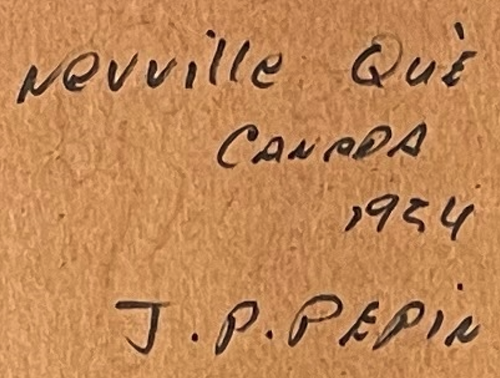 Neuville Què
CANADA
1954
J.P.PEPiN